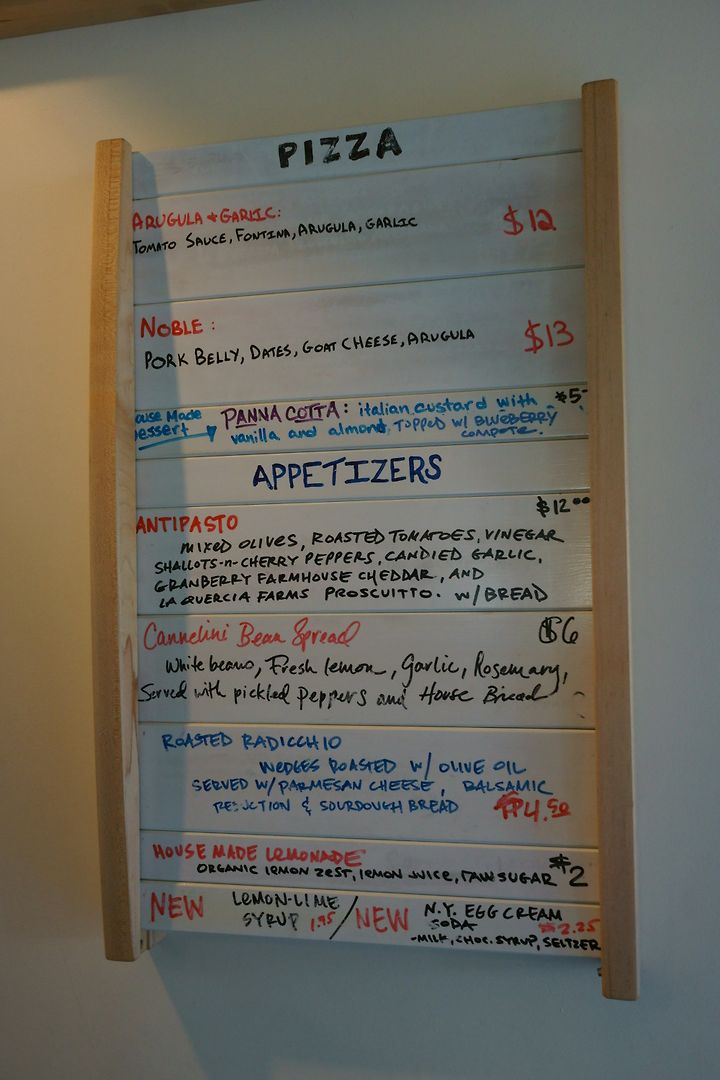 PIZZA
ARUGULA & GARLIC:
TOMATO SAUCE, FONTINA, ARUGULA, GARLIC
$12
NOBLE:
PORK BELLY, DATES, GOAT CHEESE, ARUGULA
$13
ouse Made
essert
PANNA COTTA: italian custard with
vanilla and almond, TOPPED W/ BLUEBERRY
COMPOTE.
$5-
APPETIZERS
ANTIPASTO
$12.00
MIXED OLIVES, ROASTED TOMATOES, VINEGAR
SHALLOTS-n-CHERRY PEPPERS, CANDIED GARLIC,
GRANBERRY FARMHOUSE CHEDDAR, AND
LA QUERCIA FARMS PROSCUITTO. W/BREAD
Cannelini Bean Spread
$6
White beans, Fresh lemon, Garlic, Rosemary,
Served with pickled Peppers and House Bread
ROASTED RADICCHIO
WEDGES ROASTED W/ OLIVE OIL
SERVED W/PARMESAN CHEESE, BALSAMIC
REDUCTION & SOURDOUGH BREAD
4.50
HOUSE MADE LEMONADE
ORGANIC LEMON ZEST, LEMON JUICE, RAW SUGAR
$2
NEW LEMON-LIME
SYRUP 1.95
/ NEW N.Y. EGG CREAM
SODA $2.25
-MILK, CHOC. SYRUP, SELTZER